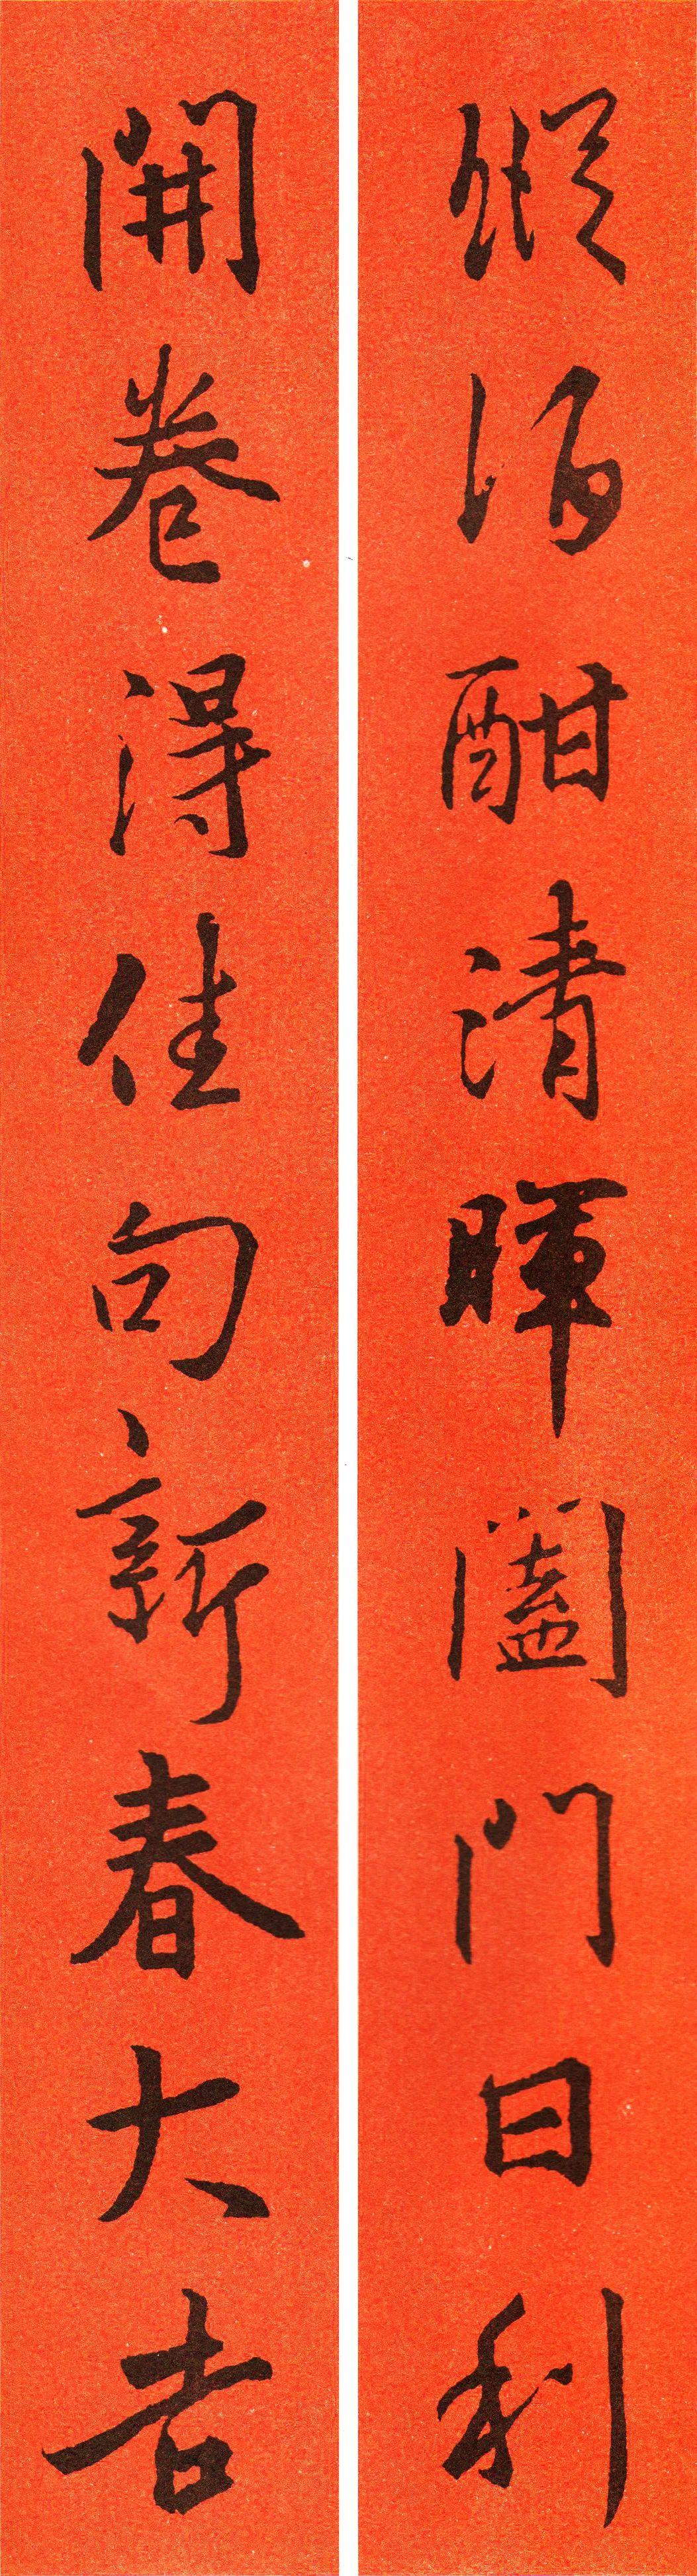 縱酒酣清暉闔門日利
開卷得佳句新春大吉